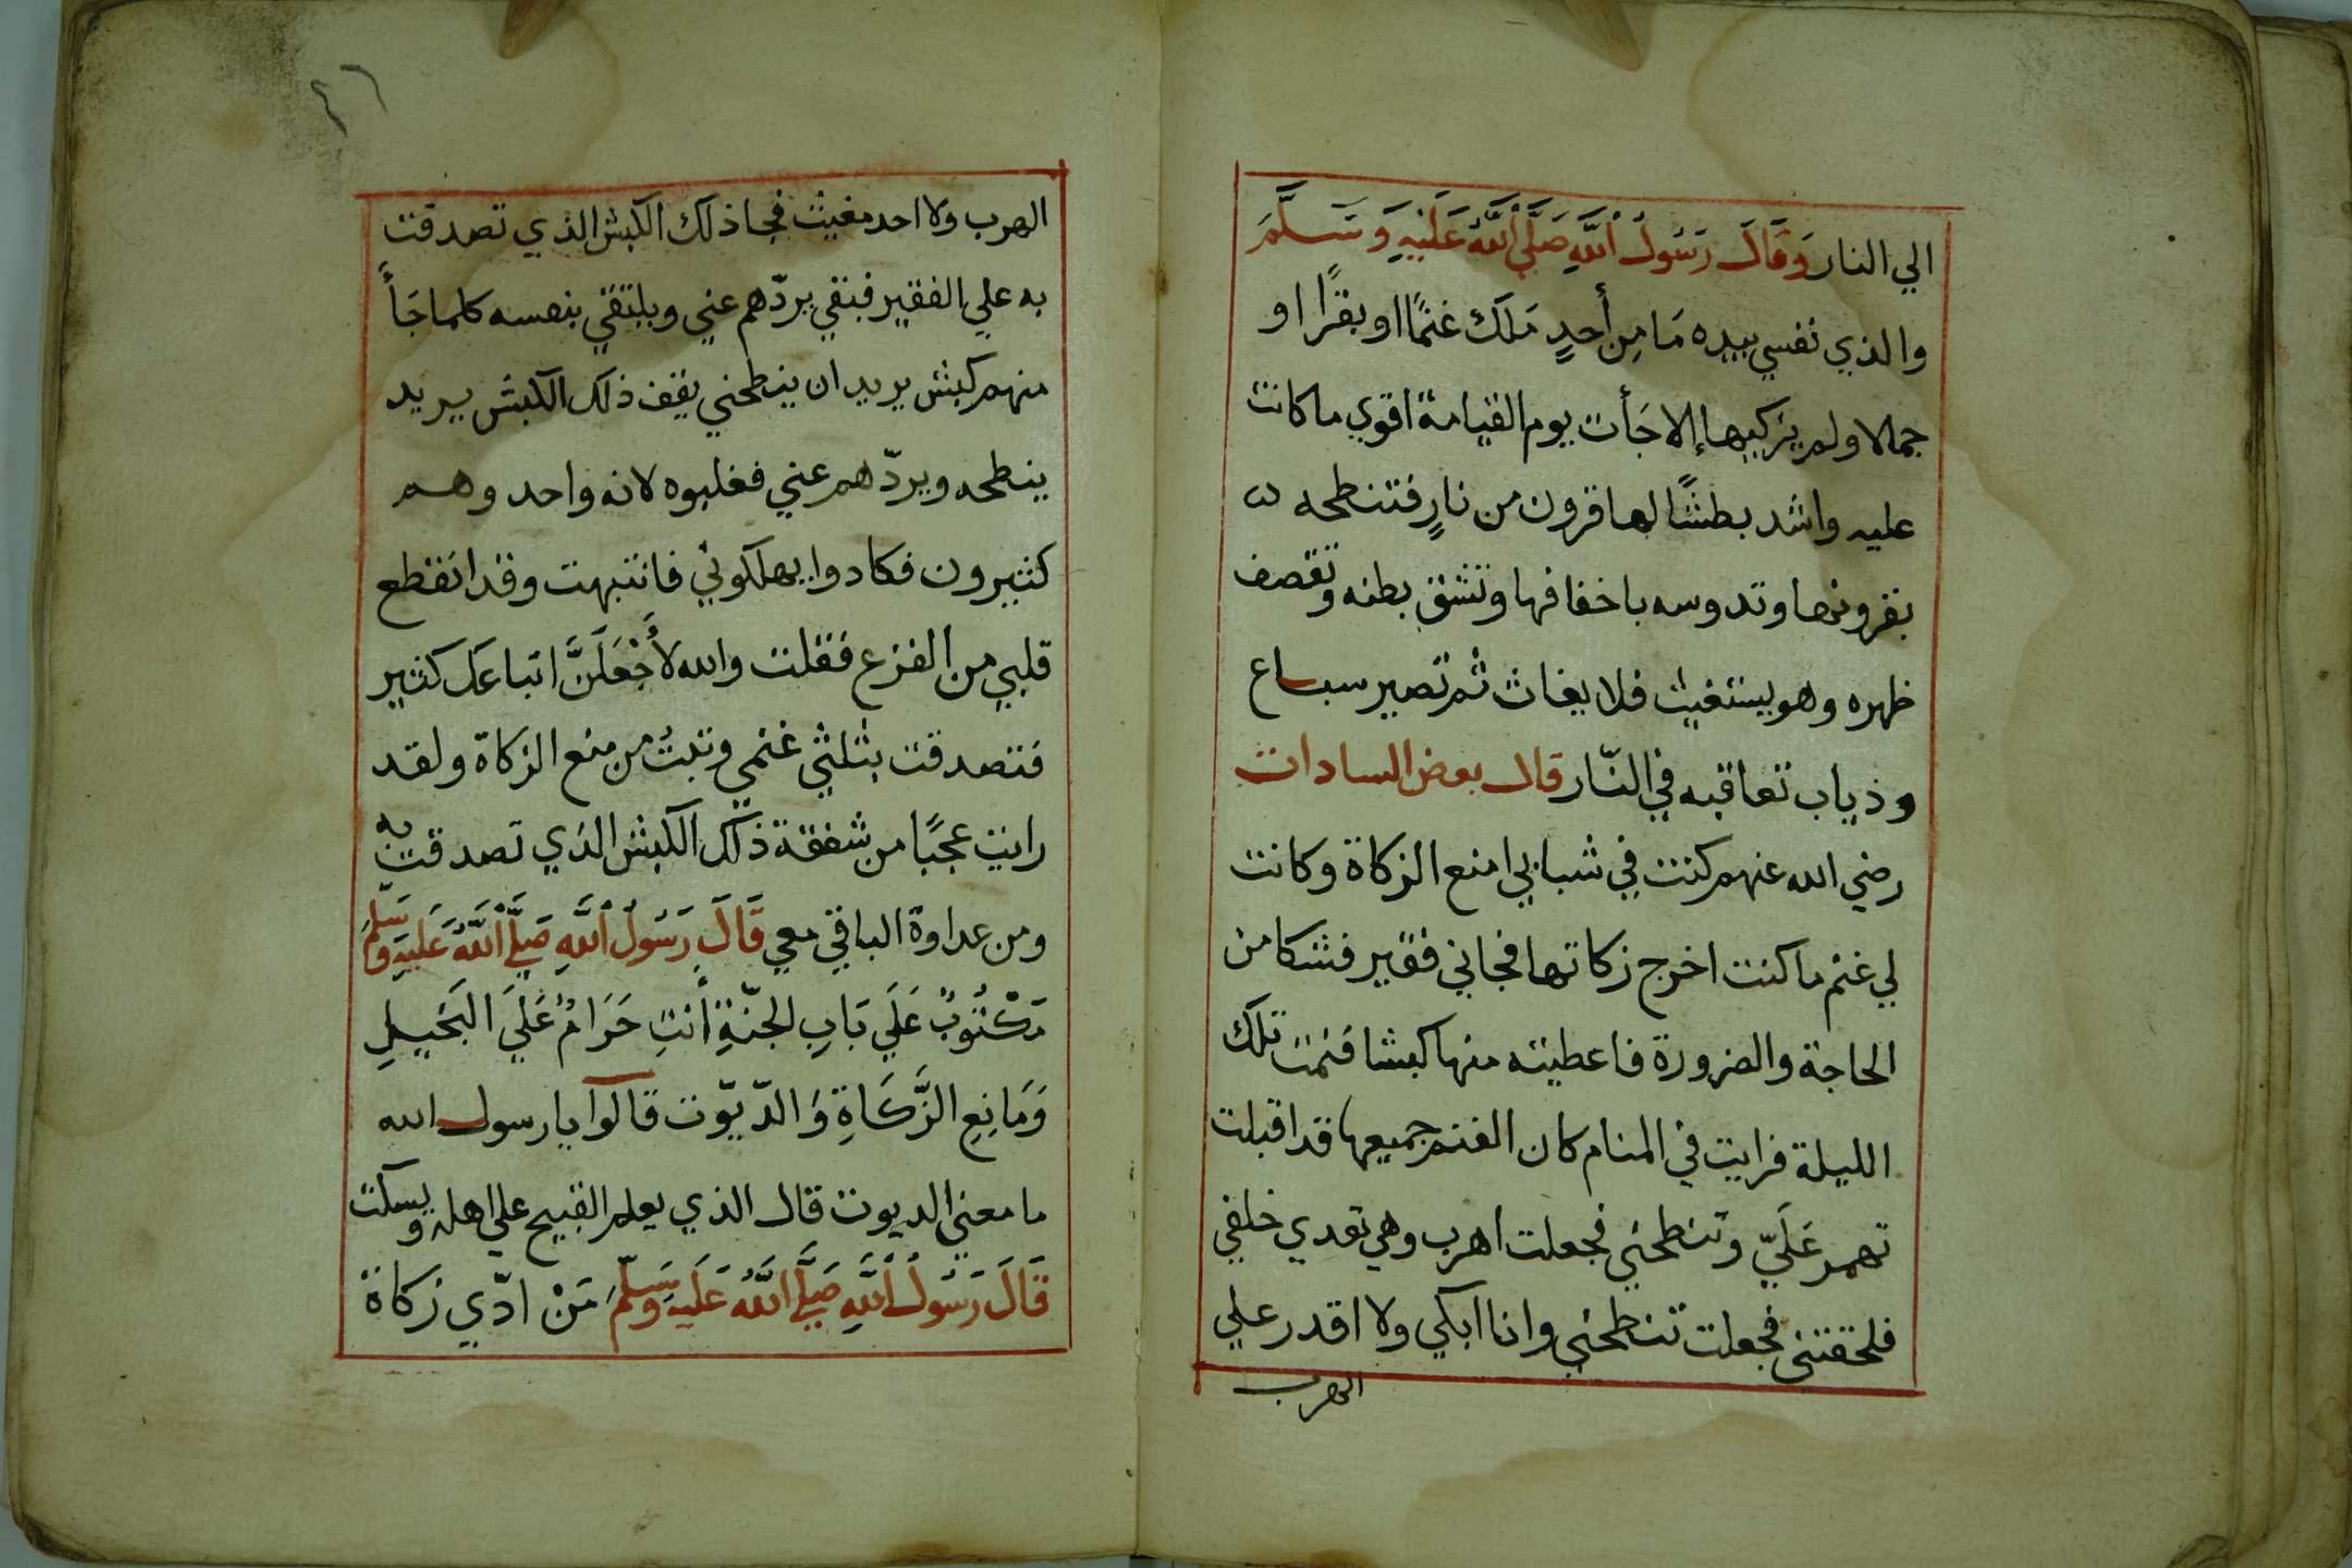 الي النار وَقَالَ رَسُولُ اللَّهِ صَلَّي اللَّهُ عَلَيْهِ وَسَلَّمَ
والذي نفسي بيده مَا مِن أَحدٍ مَلَكَ غنمًا او بقرًا او
جمالا ولم يزكيها إلا جَأت يوم القيامة اقوي ما كانت
عليه واشد بطشًا لها قرون من نارٍ فتنطحه
بقرونها وتدوسه باخفافها وتشق بطنه وتقصف
ظهره وهو يستغيث فلا يغاث ثم تصير سباع
وذياب تعاقبه في النّار قال بعض السادات
رضي الله عنهم كنت في شبابي امنع الزكاة وكانت
لي غنم ما كنت اخرج زكاتها فجاني فقير فشكا من
الحاجة والضرورة فاعطيته منها كبشا فنمت تلك
الليلة فرايت في المنام كان الغنم جميعها قد اقبلت
تهمر عَلَيّ وتنطحني فجعلت اهرب وهي تعدي خلفي
فلحقتني فجعلت تنطحني وانا ابكي ولا اقدر علي
الهرب
٤٦
الهرب ولا احد مغيث فجا ذلك الكبش الذي تصدقت
به علي الفقير فبقي يردّهم عني ويلتقي بنفسه كلما جَأَ
منهم كبش يريد ان ينطحني يقف ذلك الكبش يريد
ينطحه ويردّهم عني فغلبوه لانه واحد وهم
كثيرون فكادوا يهلكوني فانتبهت وقد انقطع
قلبي من الفزع فقلت والله لأَجْعَلَنَّ اتباعك كثير
فتصدقت بثلثي غنمي وتبتُ من منع الزكاة ولقد
رايت عجبًا من شفقة ذلك الكبش الذي تصدقت به
ومن عداوة الباقي معي قَالَ رَسُولُ اللَّهِ صَلَّي اللَّهُ عَلَيْهِ وَسَلَّمَ
مَكْتُوبٌ عَلَي بَابِ الجنّةِ أنتِ حَرَامٌ عَلَيَ البَخيلِ
وَمَانِعِ الزَّكَاةِ وَالدّيّوت قالوا يا رسول الله
ما معني الديوت قال الذي يعلم القبيح علي اهله ويسكت
قَالَ رَسُولُ اللَّهِ صَلَّي اللَّهُ عَلَيهِ وَسَلَّمَ مَنْ ادّي زكاة